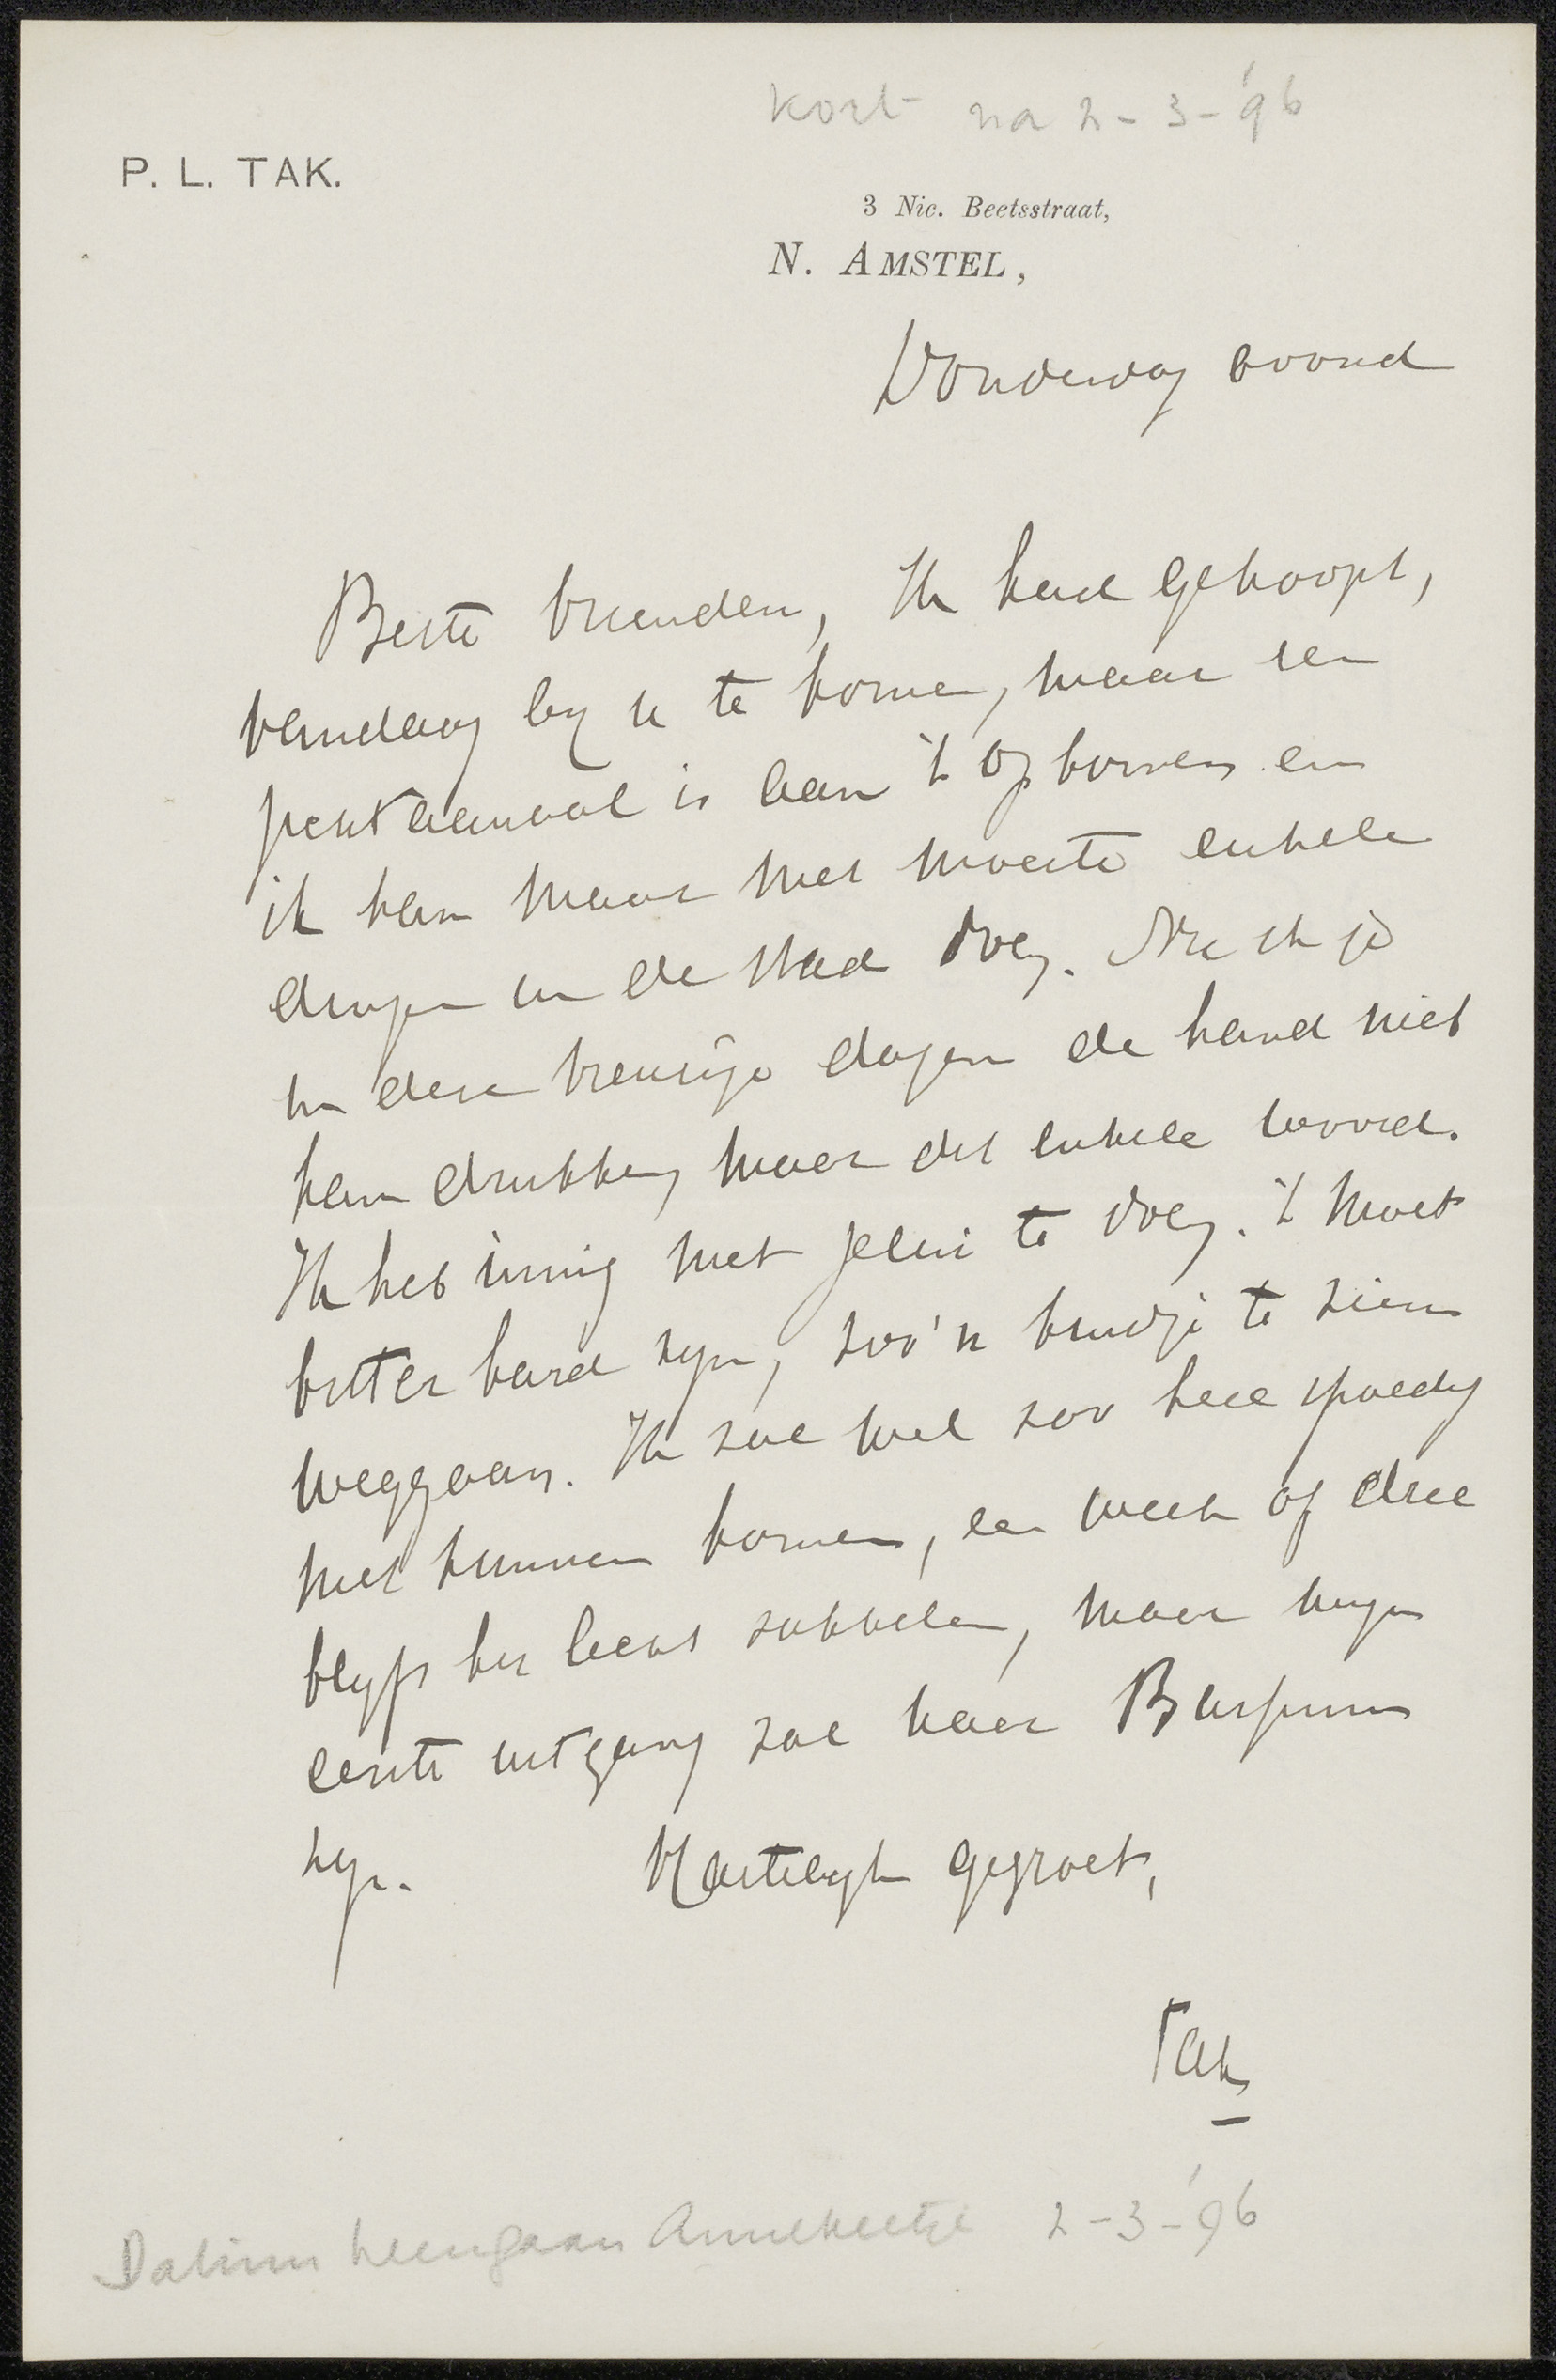 kort na 2-3-'96
P. L. TAK.
3 Nic. Beetsstraat,
N. AMSTEL,
Donderdag avond
Beste vrienden, Ik had gehoopt,
vandaag by u te komen, maar een
jichtaanval is aan 't opkomen en
ik kan maar met moeite enkele
dingen in de stad doen. Nu ik je
in deze treurige dagen de hand niet
kan drukken, maar dit enkele woord.
Ik heb innig met jelui te doen. 't Moet
bitter hard zyn, zoo'n kindje te zien
weggaan. Ik zal wel zoo heel spoedig
niet kunnen komen, een week of drie
blyft het licht sukkelen, maar myn
eerste uitgang zal naar Bussum
zyn. Hartelyk gegroet,
Tak
Datum heengaan Annekeetje 2-3-'96